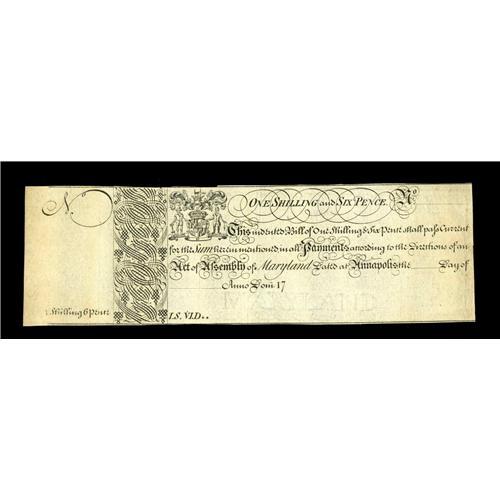 N.
ONE SHILLING and SIX PENCE. No
This indented Bill of One Shilling & Six pence shall pass Current
for the Sum herein mentioned in all Payments according to the Directions of an
Act of Assembly of Maryland Dated at Annapolis the Day of
Anno Dom 17
1 Shilling 6 pence I.S. VI.D..